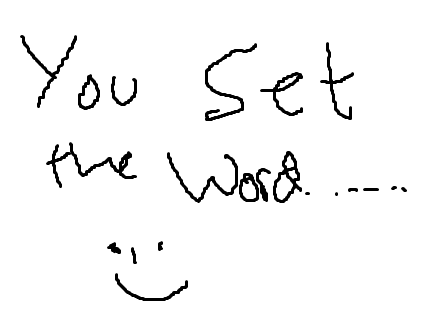 You Set
the Word. .---..